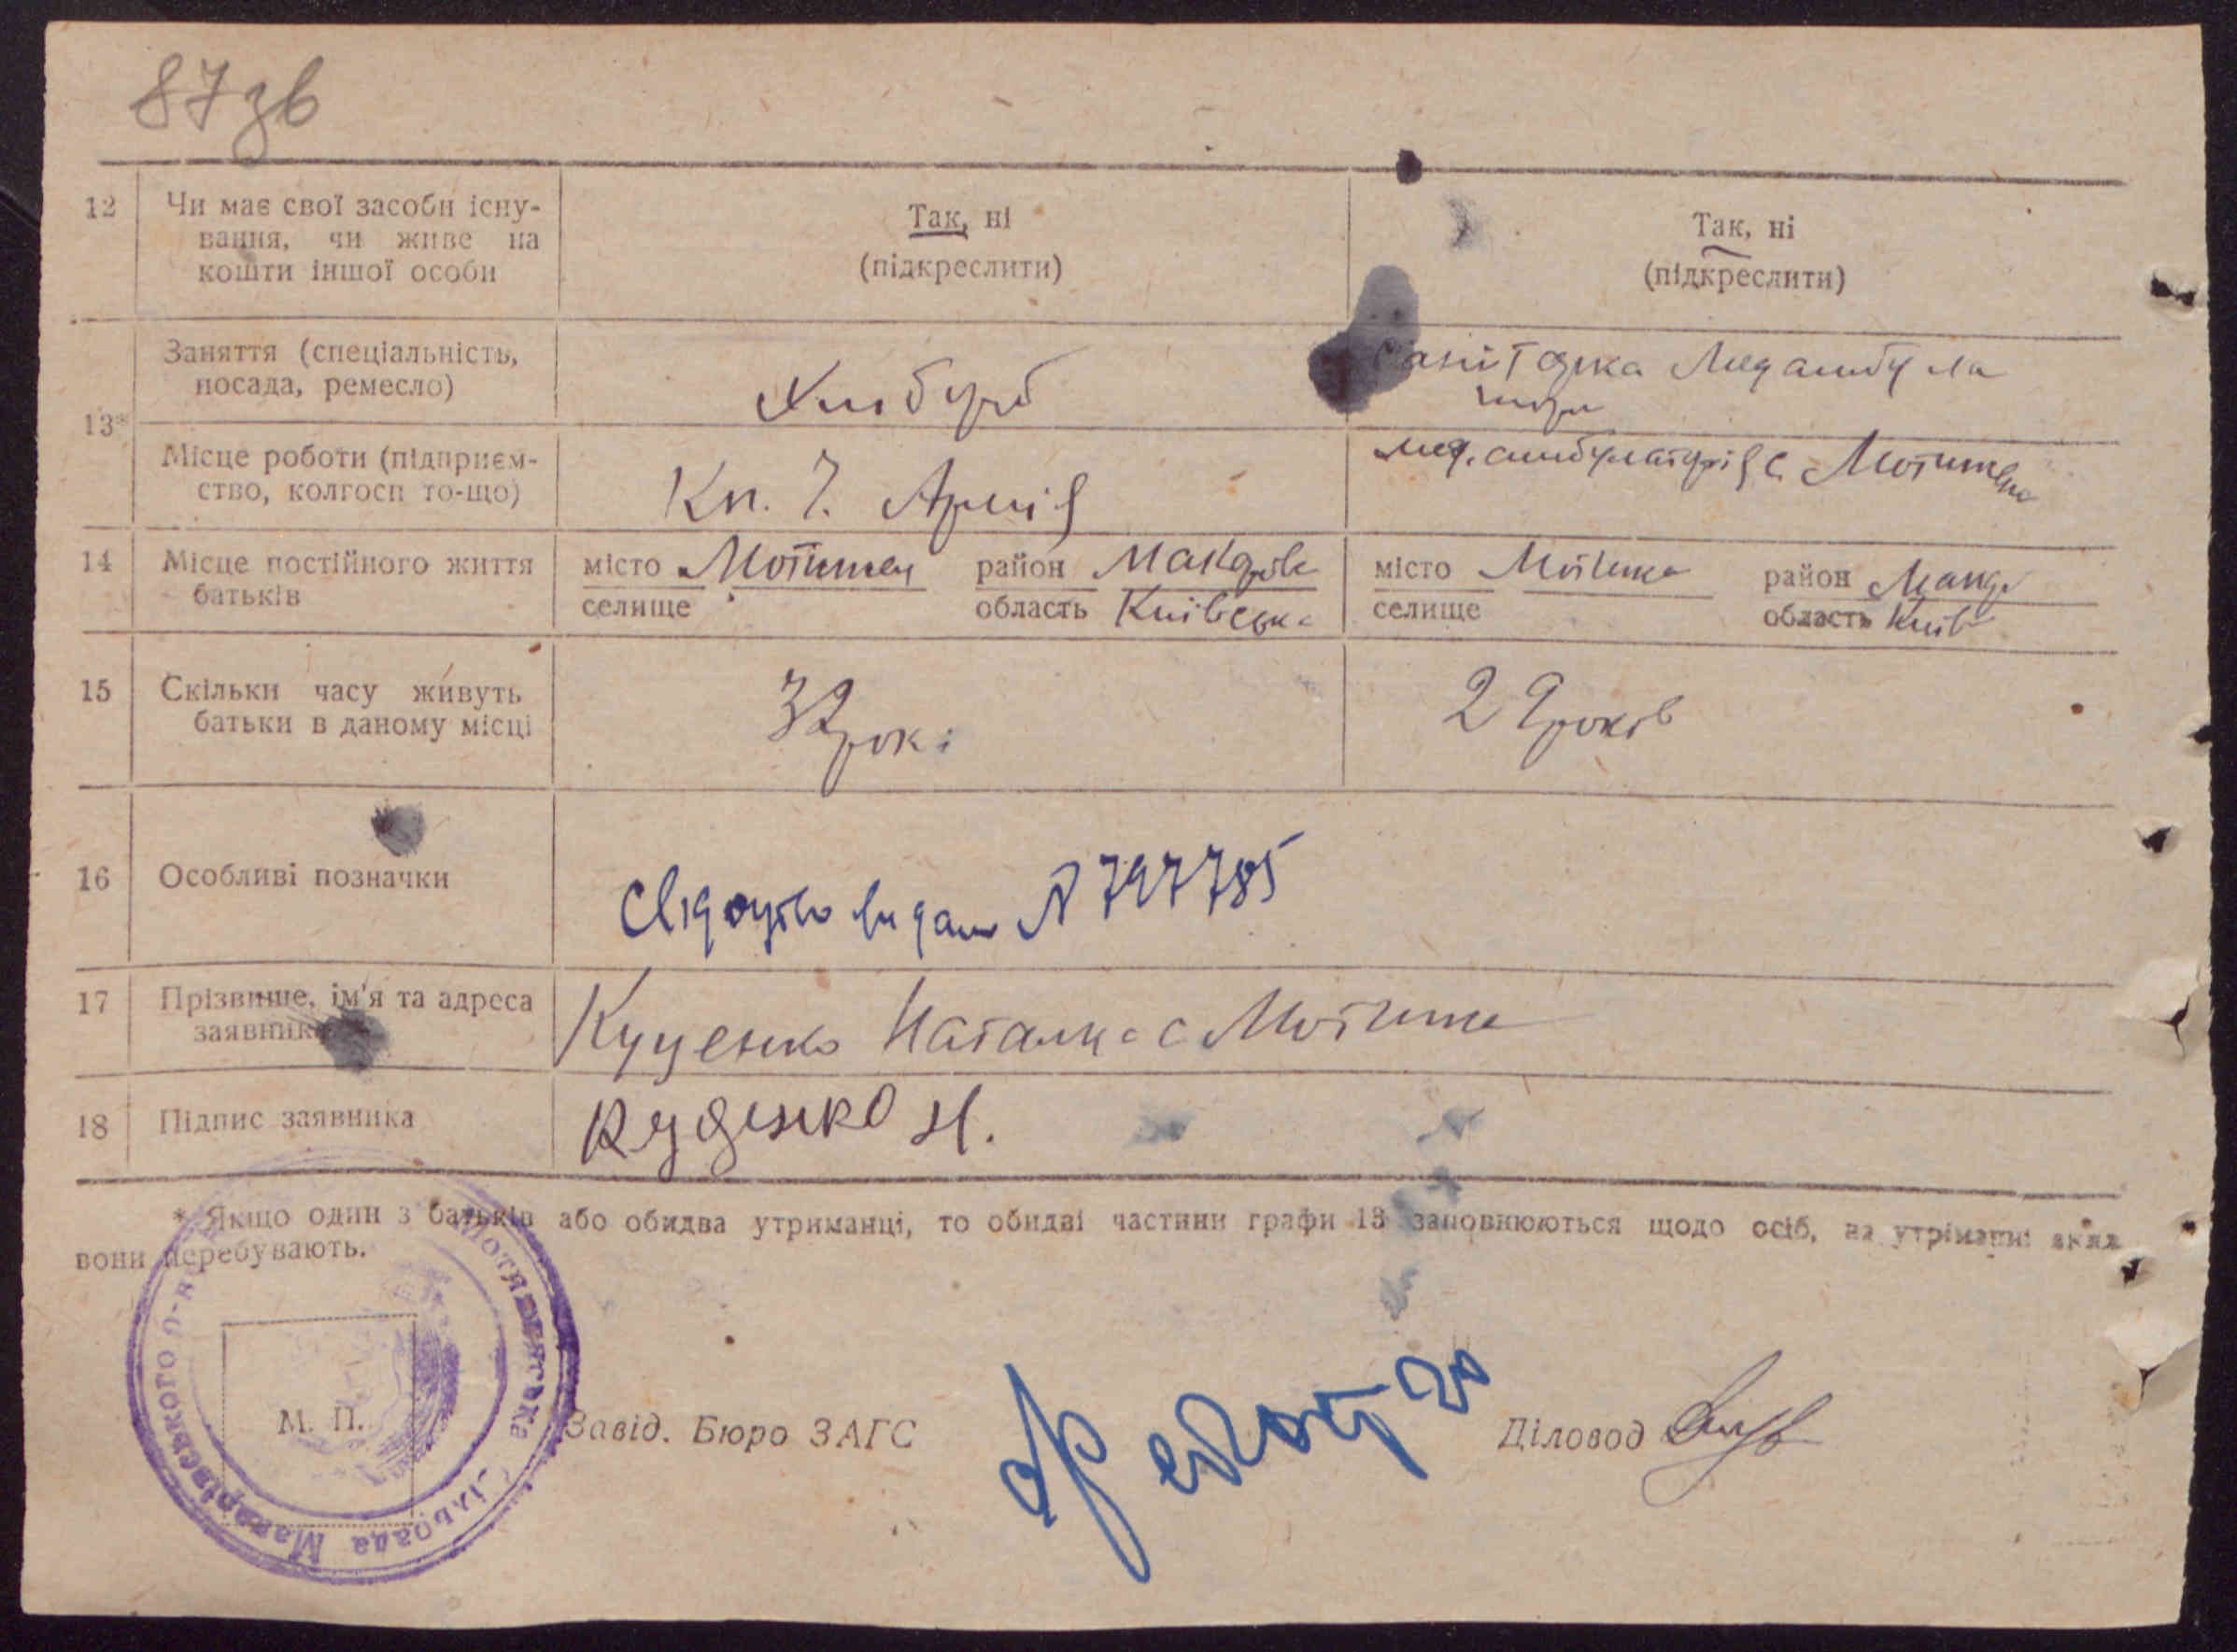 87зв
12 Чи має свої засоби існу-
вання, чи живе на
кошти іншої особи
Так, ні
(підкреслити)
Так, ні
(підкреслити)
13*
Заняття (спеціальність,
посада, ремесло)
Хлібороб
Санітарка Медамбула
торії
Місце роботи (підприєм-
ство, колгосп то-що)
Кп. Ч. Армія
мед. амбулаторія с. Мотижен
14 Місце постійного життя
батьків
місто Мотижен район Макарів
селище область Київська
місто Мотиже район Макар
селище область Київ
15 Скільки часу живуть
батьки в даному місці
32 роки
29 років
16 Особливі позначки
Свідоцтво видано № 797785
17 Прізвище, ім'я та адреса
заявника
Куценко Наталка с Мотиже
18 Підпис заявника
Куценко Н.
* Якщо один з батьків або обидва утриманці, то обидві частини графи 13 заповнюються щодо осіб, на утриманні яких
вони перебувають.
М. П.
Завід. Бюро ЗАГС
Діловод
Сільрада Макарівського р-н